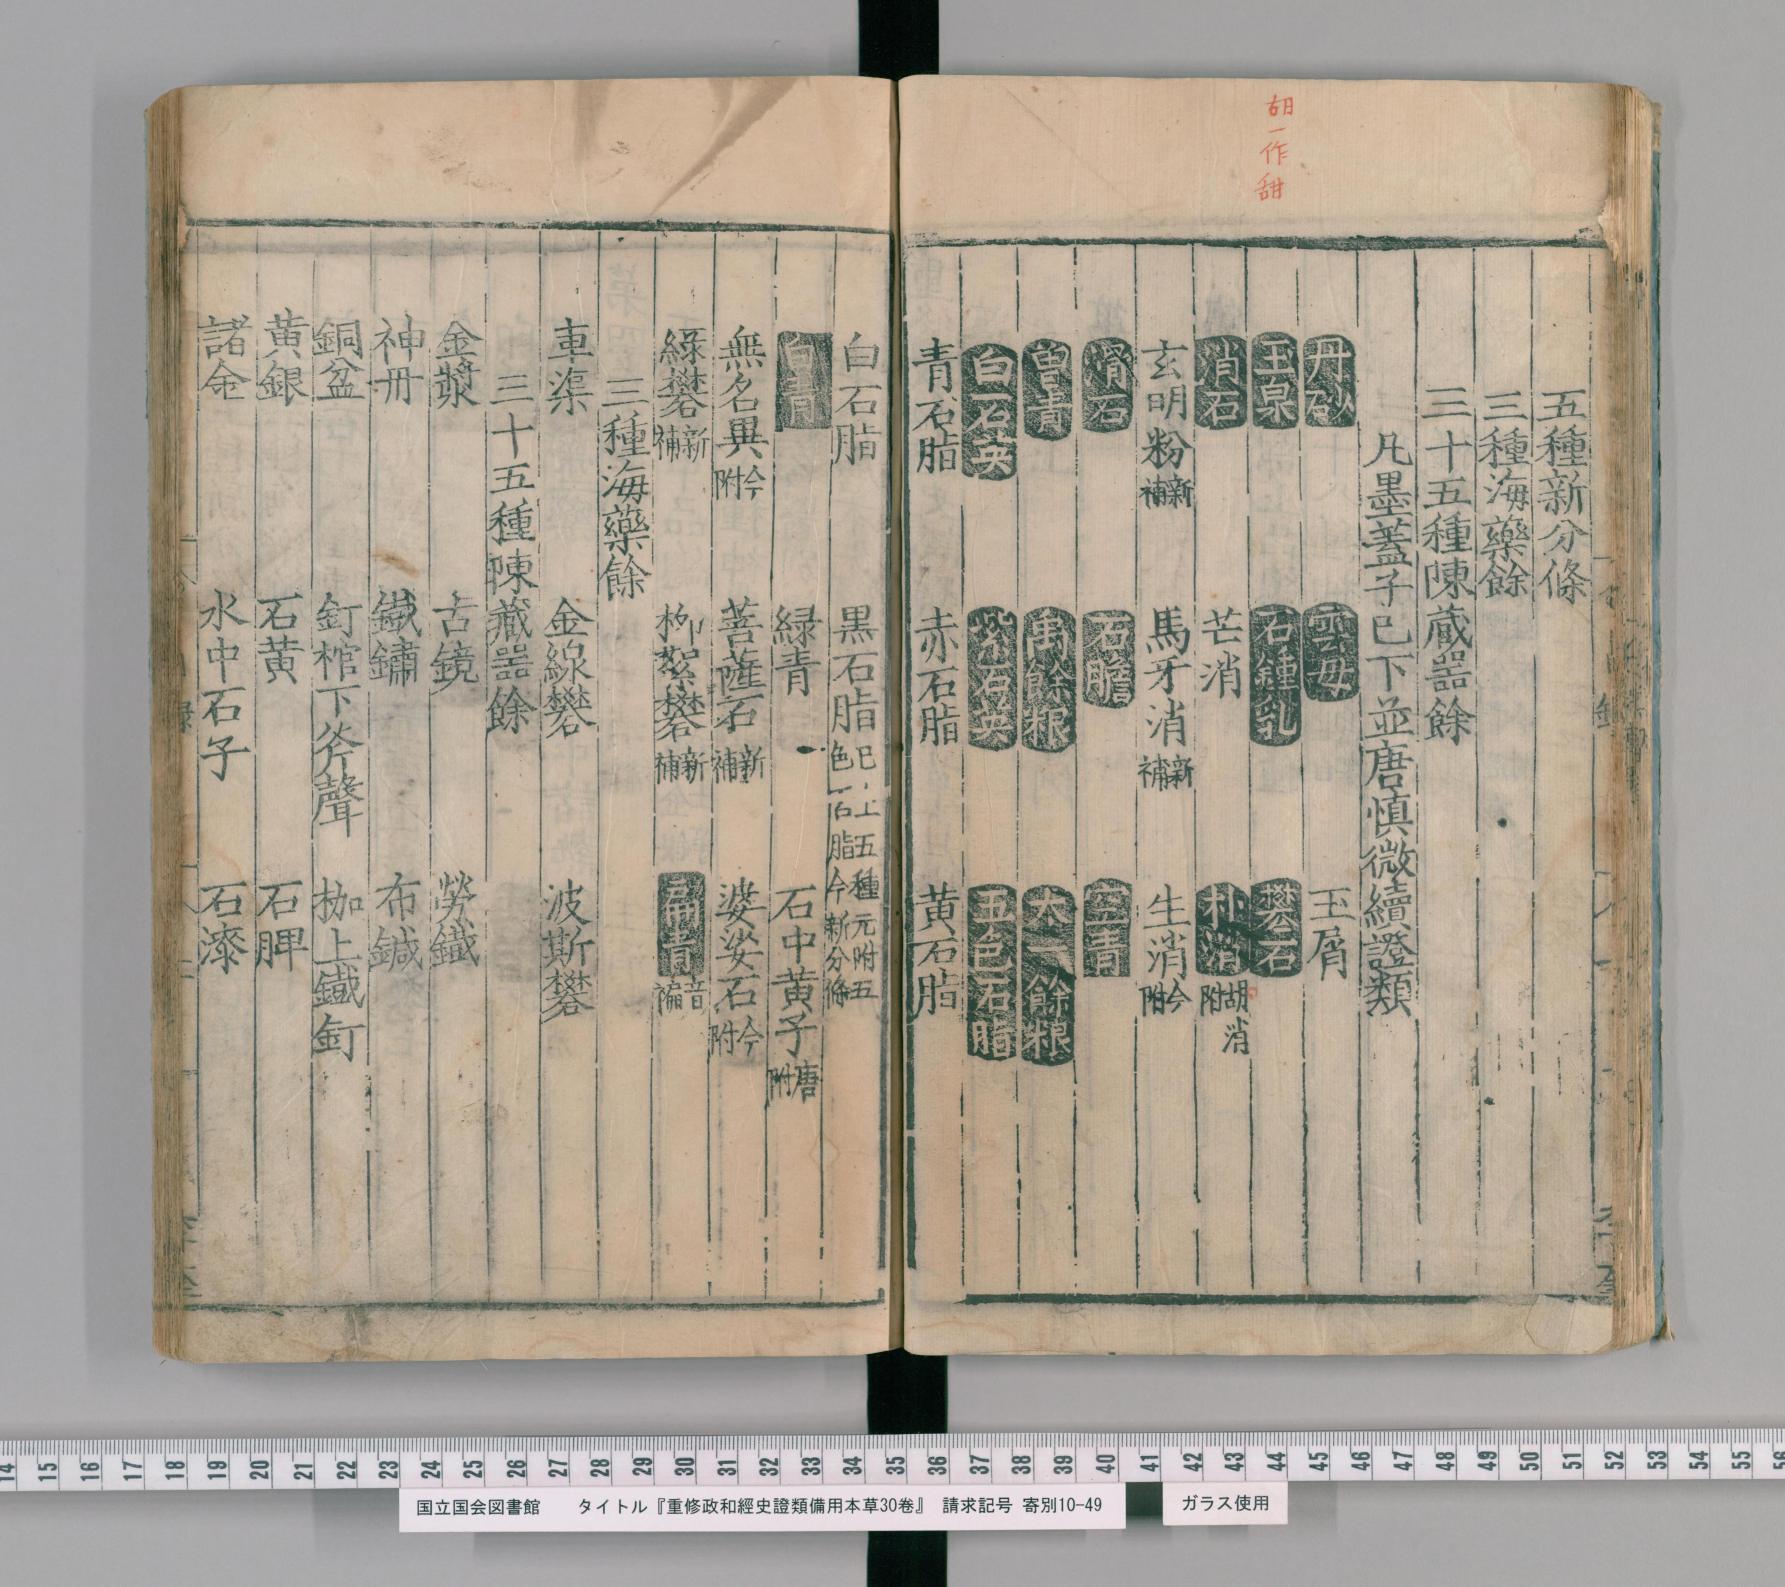 胡一作甜
五種新分條
三種海藥餘
三十五種陳藏器餘
凡墨蓋子已下並唐慎微續證類
丹砂 雲母 玉屑
玉泉 石鍾乳 礬石
消石 芒消 朴消胡消附
玄明粉新補 馬牙消新補 生消今附
滑石 石膽 空青
曾青 禹餘粮 太一餘粮
白石英 紫石英 五色石脂
青石脂 赤石脂 黄石脂
白石脂 黒石脂已上五種元附五色石脂今新分條
白青 緑青 石中黄子唐附
無名異今附 菩薩石新補 婆娑石今附
緑礬新補 柳絮礬新補 扁青音褊
三種海藥餘
車渠 金線礬 波斯礬
三十五種陳藏器餘
金漿 古鏡 勞鐵
神丹 鐵鏽 布鍼
銅盆 釘棺下斧聲 枷上鐵釘
黄銀 石黄 石脾
諸金 水中石子 石漆
国立国会図書館 タイトル『重修政和經史證類備用本草30巻』 請求記号 寄別10-49
ガラス使用
14 15 16 17 18 19 20 21 22 23 24 25 26 27 28 29 30 31 32 33 34 35 36 37 38 39 40 41 42 43 44 45 46 47 48 49 50 51 52 53 54 55 56